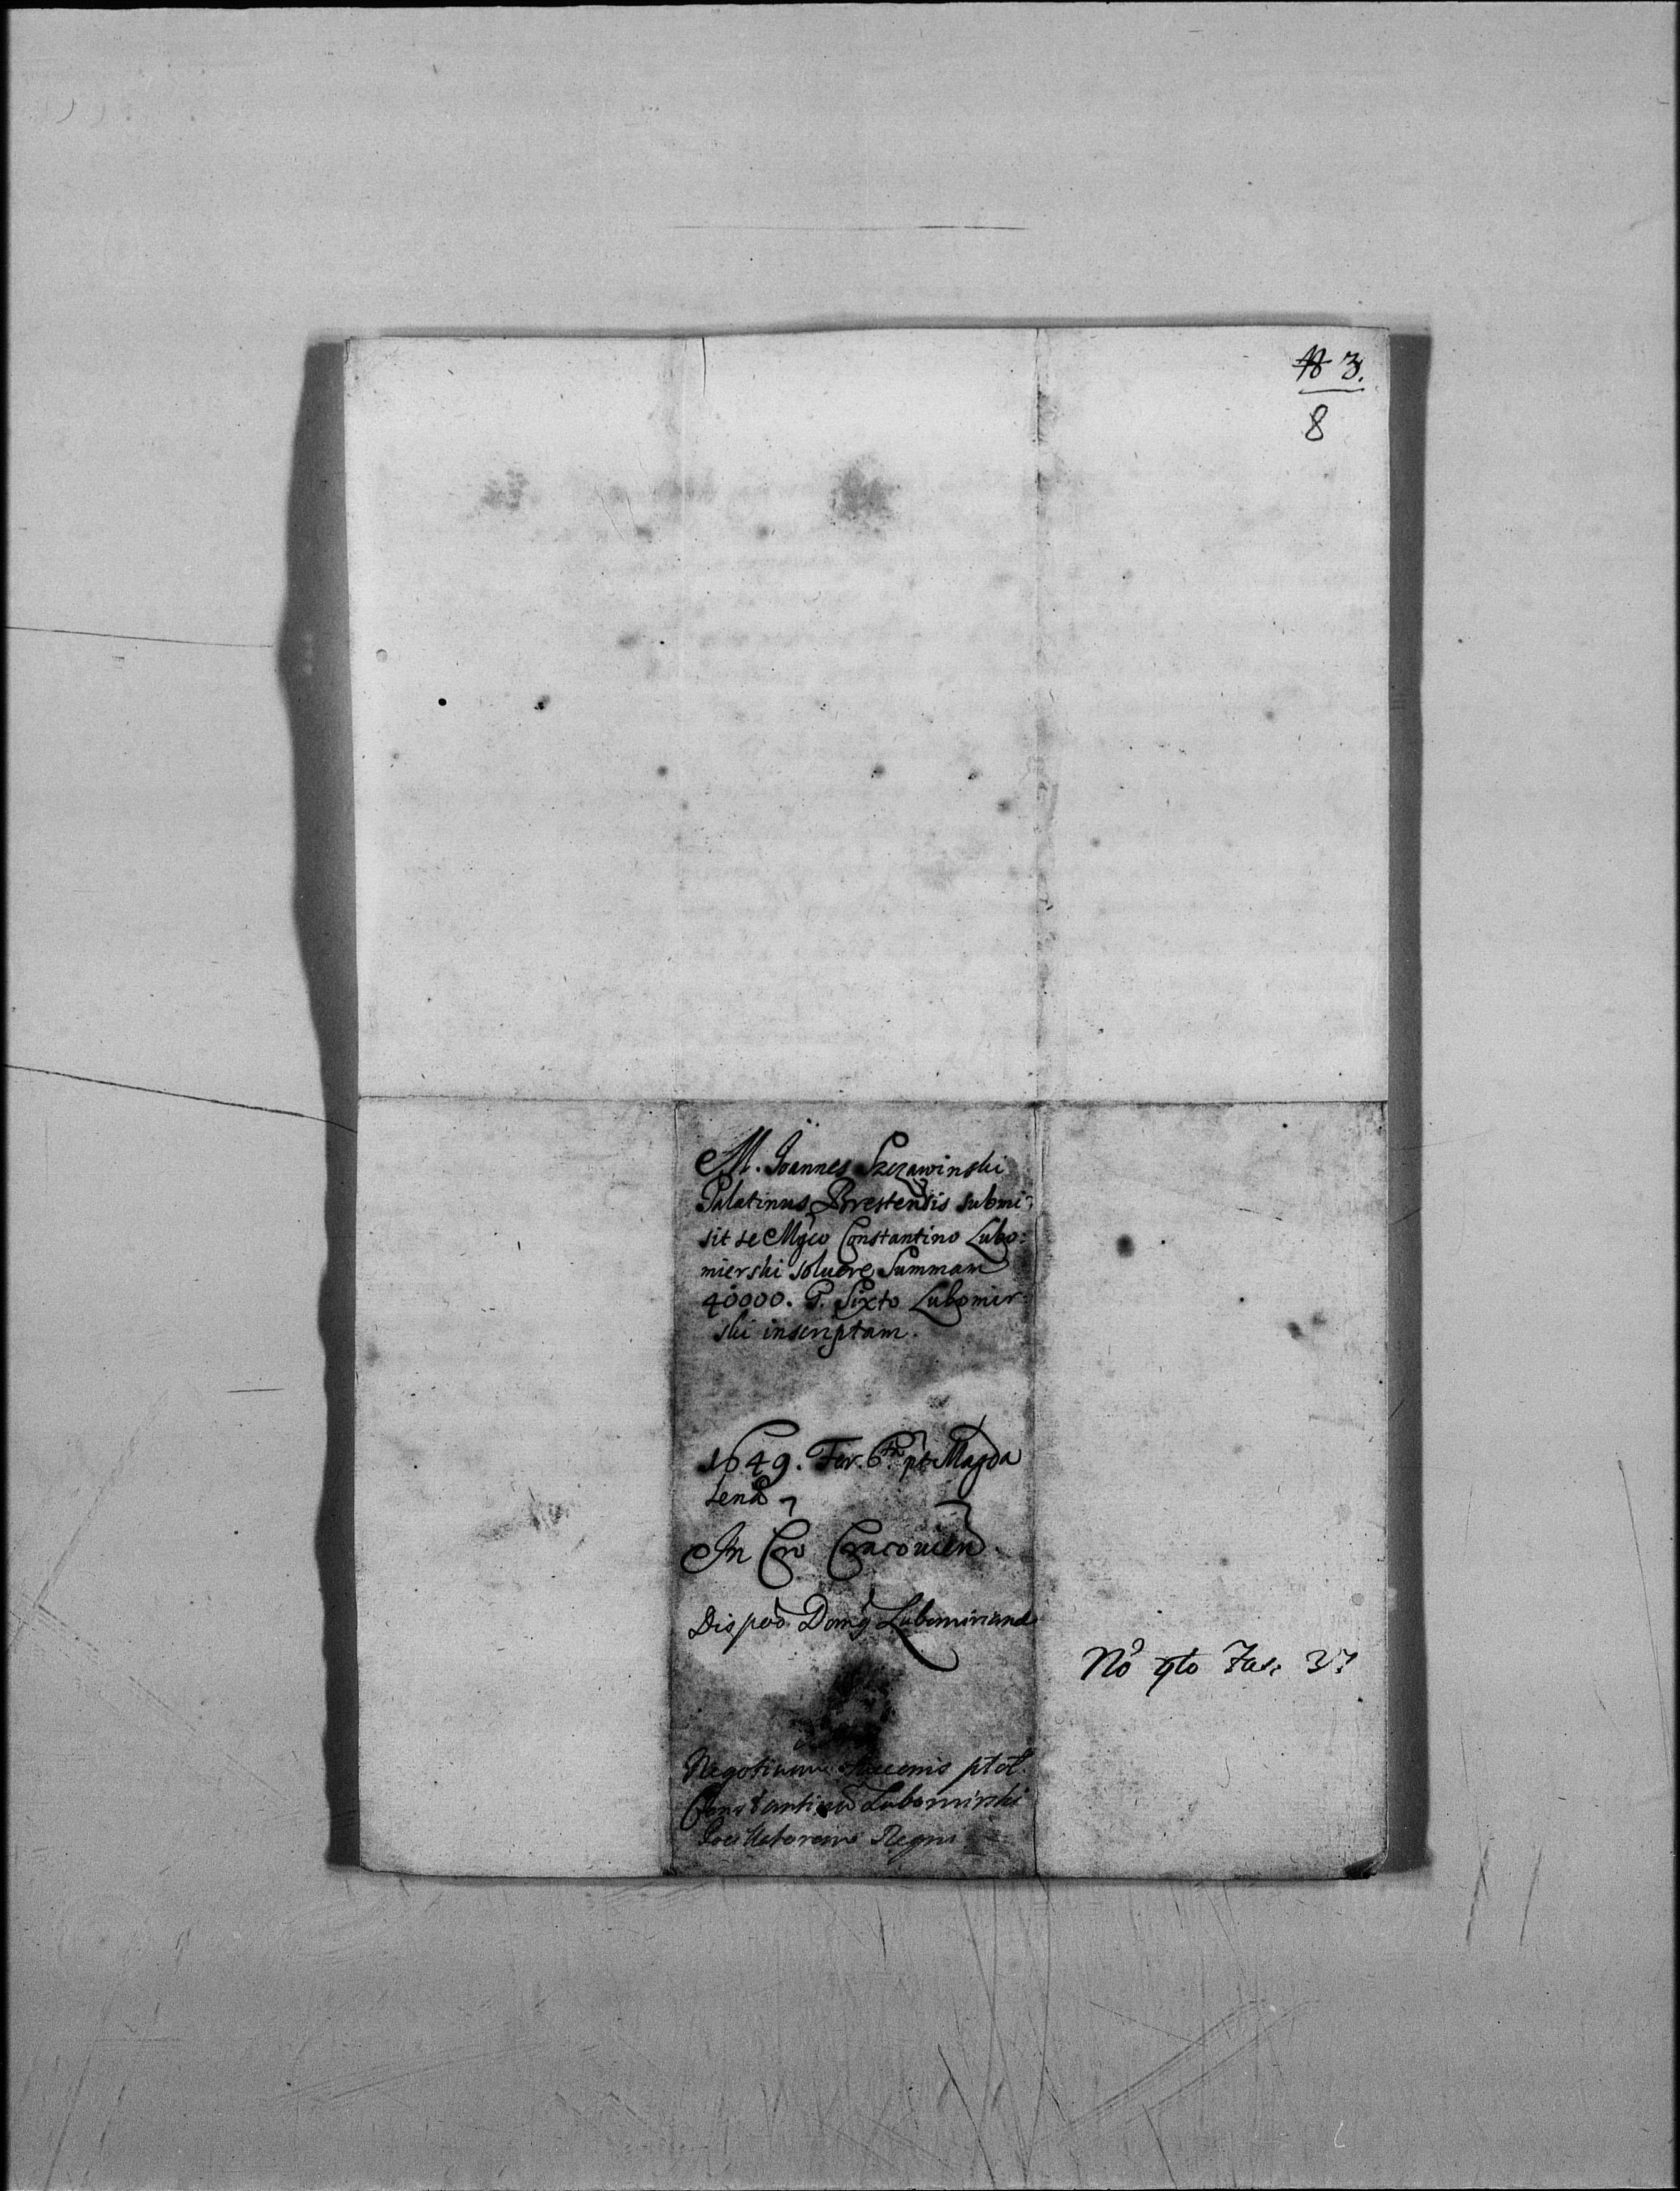 N 3.
8
M. Joannes Szczawinski
Palatinus Brestensis submi:
sit se Mgco Constantino Lubo:
mierski soluere Summam
40000. G. Sixto Lubomir
ski inscriptam.
1649. Fer. 6ta pt Magda
lena
In Cro Cracouien
Domg Lubomirianae
No 9to Fas: 37
Negotium
Constantinū Lubomirski
Regni